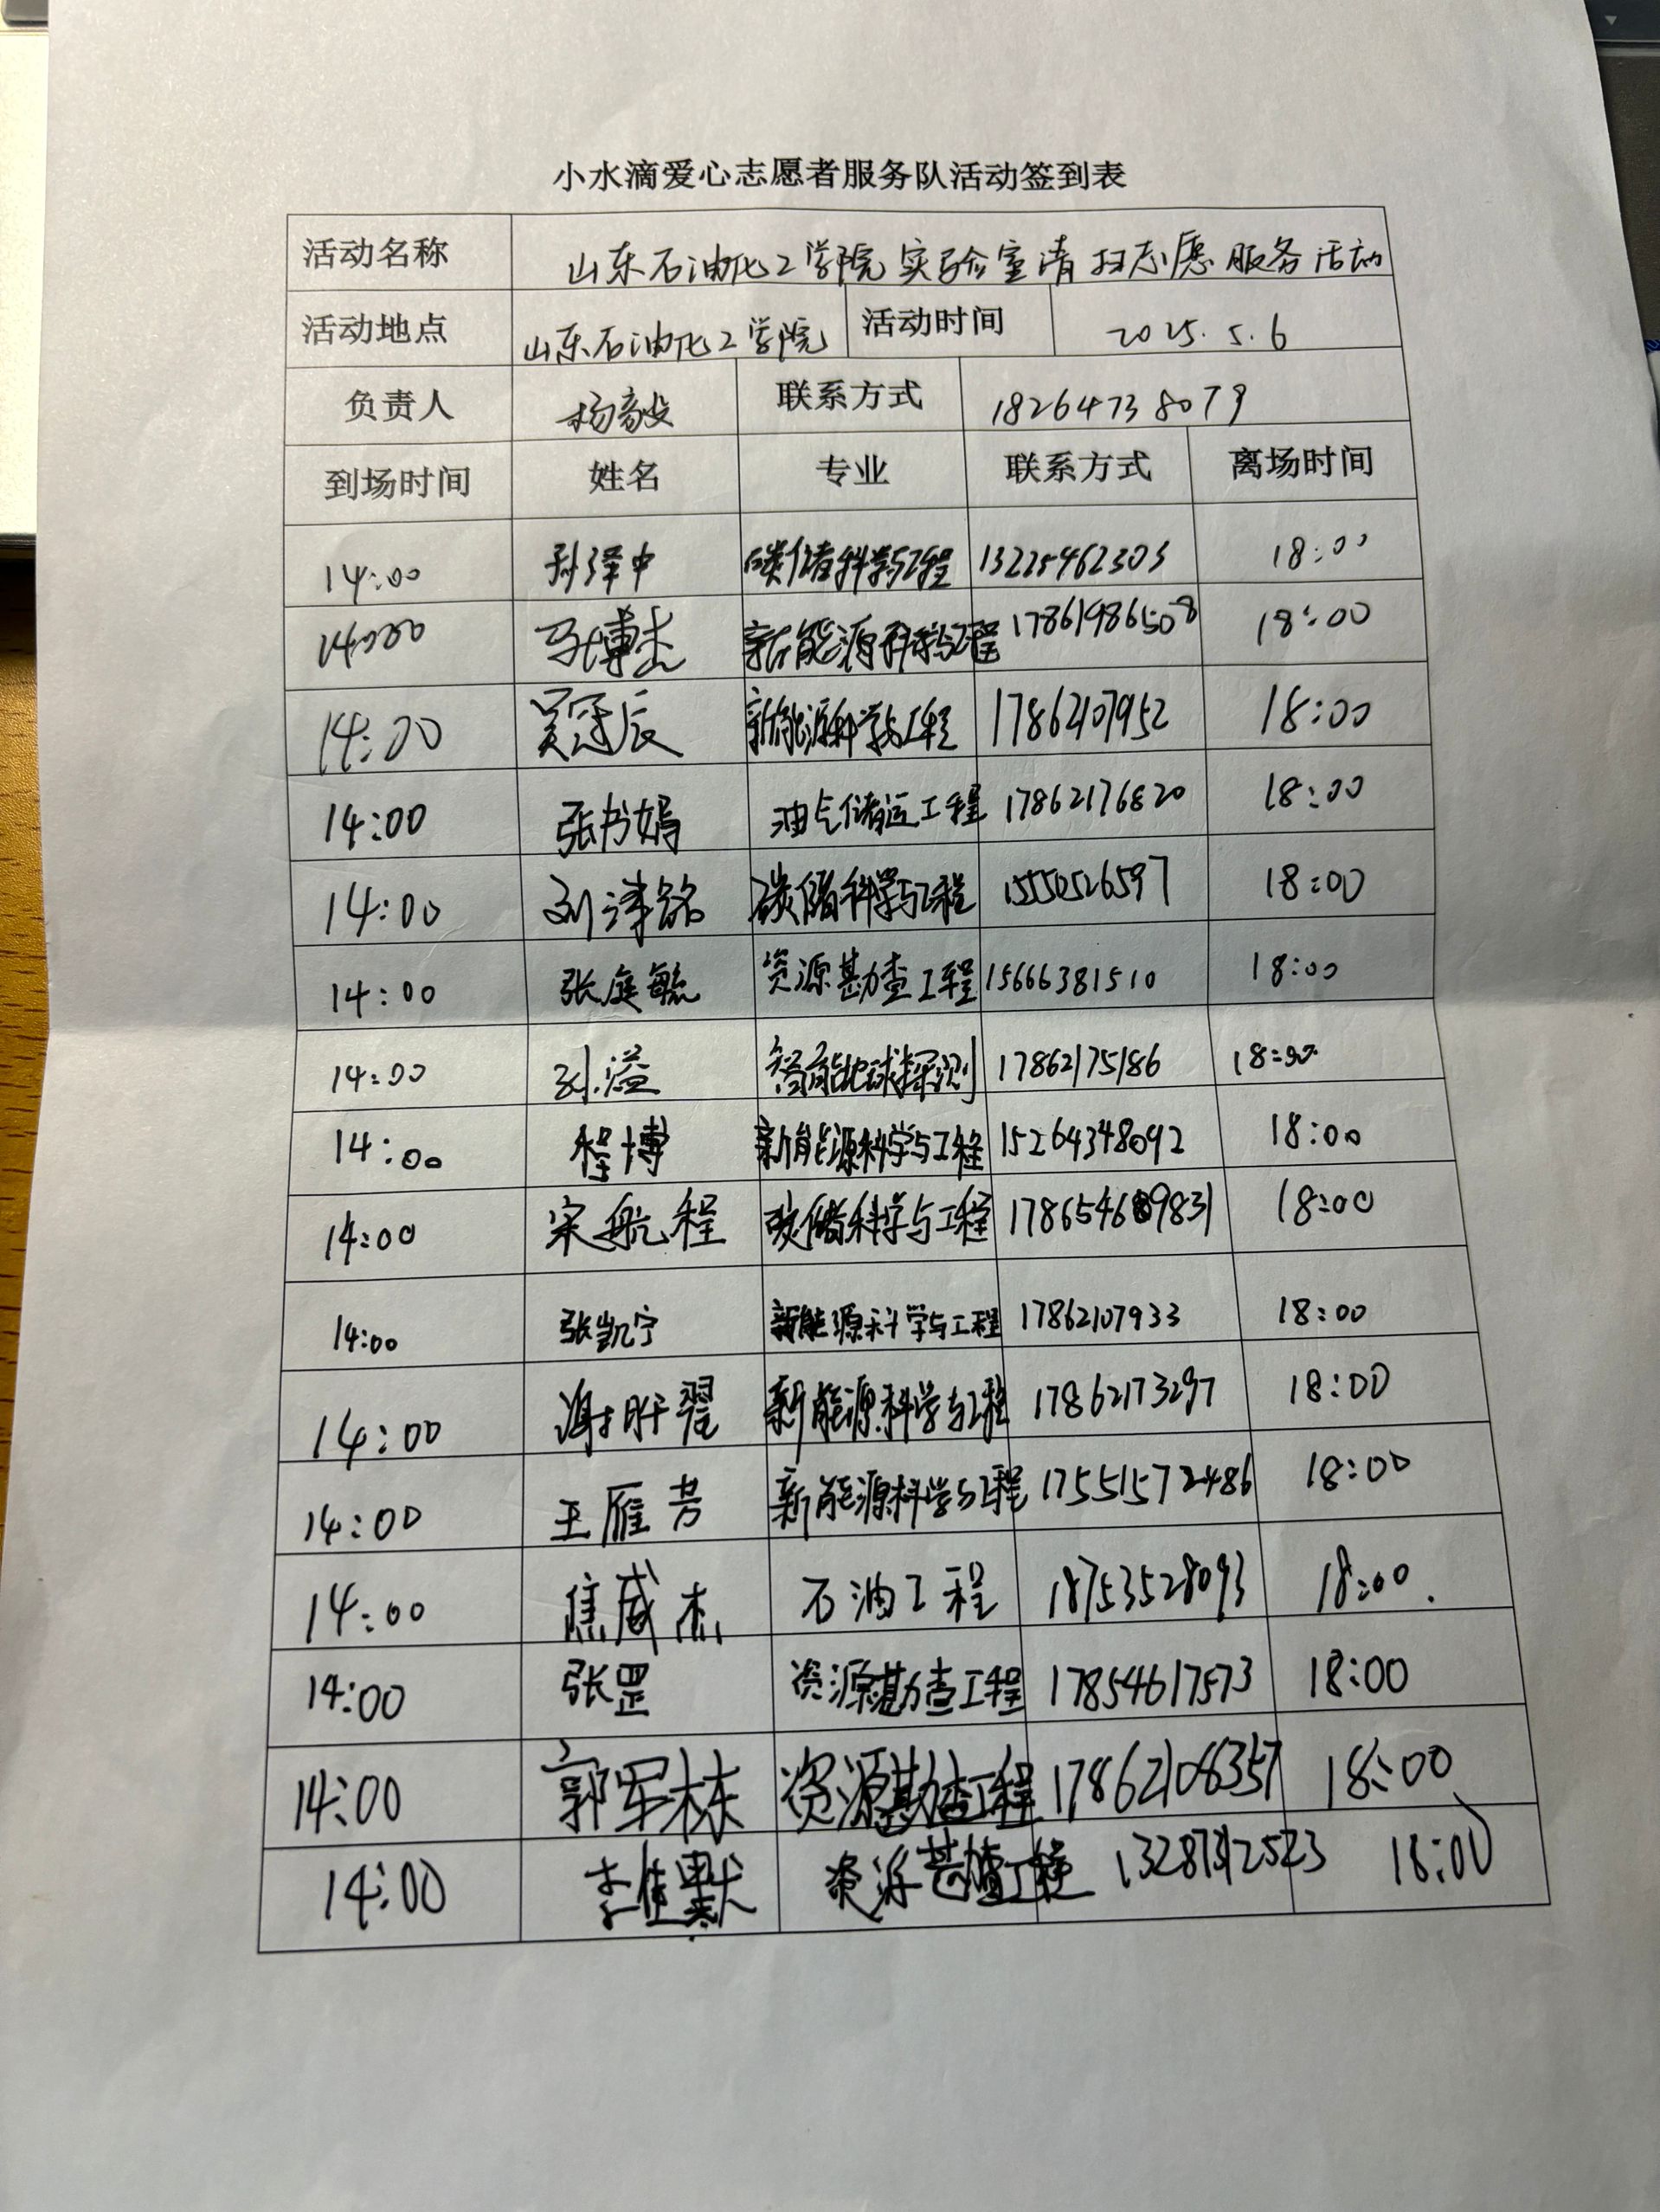 小水滴爱心志愿者服务队活动签到表
活动名称 山东石油化工学院实验室清扫志愿服务活动
活动地点 山东石油化工学院 活动时间 2025.5.6
负责人 杨毅 联系方式 18264738079
到场时间 姓名 专业 联系方式 离场时间
14:00 孙泽中 碳储科学与工程 13225462303 18:00
14:00 马博杰 新能源科学与工程 17861986508 18:00
14:00 吴冠辰 新能源科学与工程 17862107952 18:00
14:00 张书嫣 油气储运工程 17862176820 18:00
14:00 刘津铭 碳储科学与工程 15550526597 18:00
14:00 张庭毓 资源勘查工程 15666381510 18:00
14:00 刘溢 智能地球探测 17862175186 18:00
14:00 程博 新能源科学与工程 15264348092 18:00
14:00 宋航程 碳储科学与工程 18:00
14:00 张凯宁 新能源科学与工程 17862107933 18:00
14:00 谢昕翟 新能源科学与工程 17862173297 18:00
14:00 王雁芳 新能源科学与工程 17551572486 18:00
14:00 焦威杰 石油工程 18753528093 18:00.
14:00 张罡 资源勘查工程 17854617573 18:00
14:00 郭军栋 资源勘查工程 17862106357 18:00
14:00 李佳默 资源勘查工程 18:00